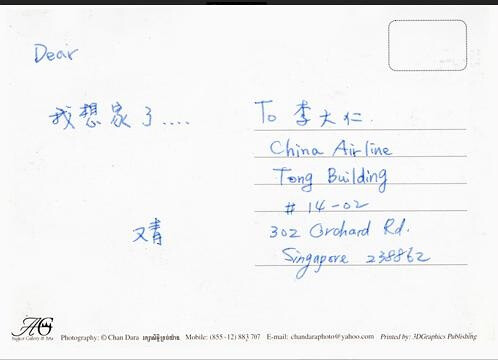 Dear
我想家了....
又青
To 李大仁.
China Airline
Tong Building
# 14-02
302 Orchard Rd.
Singapore 238862
Photography: © Chan Dara Mobile: (855-12) 883 707 E-mail: chandaraphoto@yahoo.com Printed by: 3DGraphics Publishing